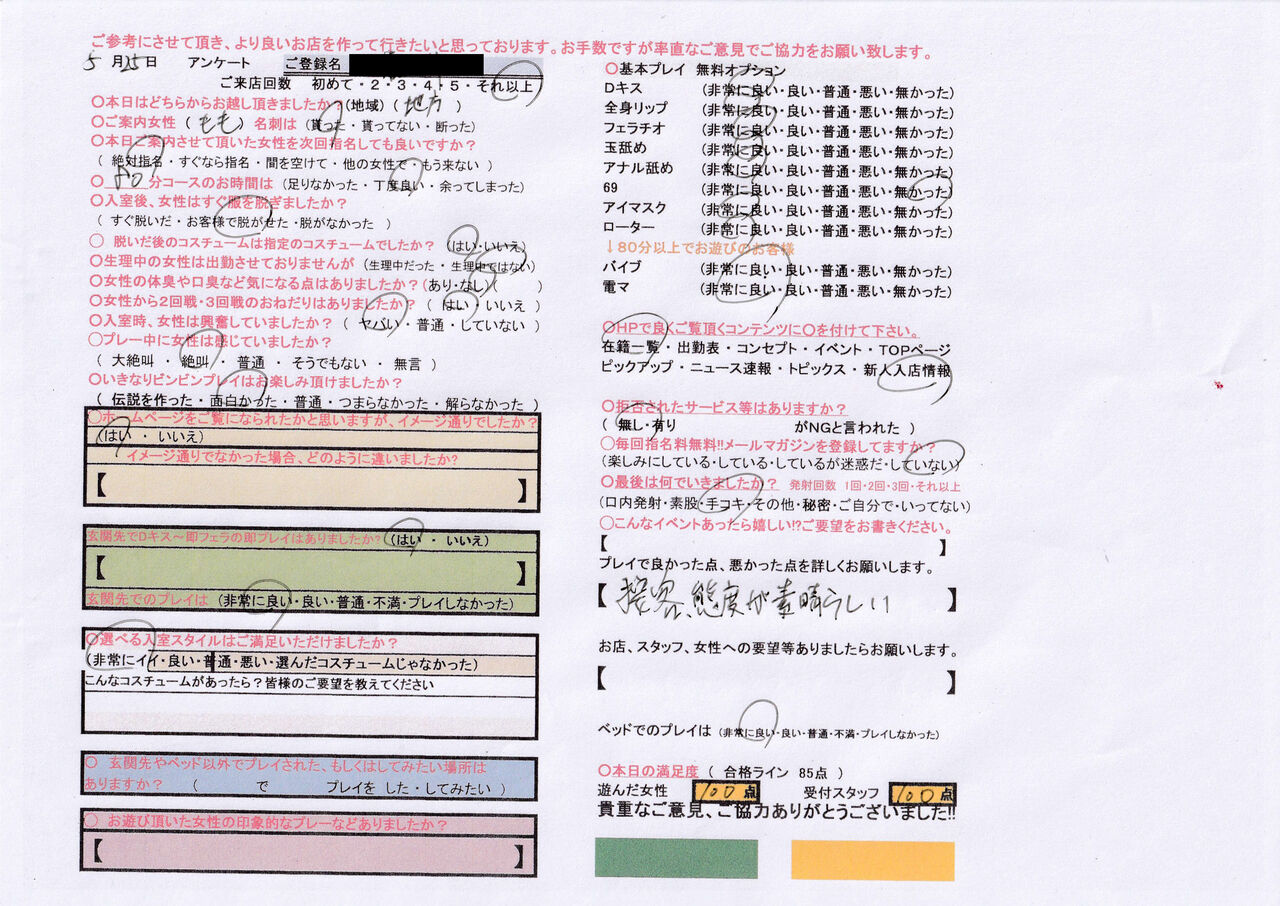 ご参考にさせて頂き、より良いお店を作って行きたいと思っております。お手数ですが率直なご意見でご協力をお願い致します。
5月25日 アンケート ご登録名
ご来店回数 初めて・2・3・4・5・それ以上
〇本日はどちらからお越し頂きましたか?(地域)( 地方 )
〇ご案内女性 ( もも ) 名刺は (貰った・貰ってない・断った)
〇本日ご案内させて頂いた女性を次回指名しても良いですか?
( 絶対指名・すぐなら指名・間を空けて・他の女性で・もう来ない )
〇 80 分コースのお時間は (足りなかった・丁度良い・余ってしまった)
〇入室後、女性はすぐ服を脱ぎましたか?
( すぐ脱いだ・お客様で脱がせた・脱がなかった )
〇 脱いだ後のコスチュームは指定のコスチュームでしたか? (はい・いいえ)
〇生理中の女性は出勤させておりませんが (生理中だった・生理中ではない)
〇女性の体臭や口臭など気になる点はありましたか?(あり・なし)( )
〇女性から2回戦・3回戦のおねだりはありましたか? ( はい・いいえ )
〇入室時、女性は興奮していましたか? ( ヤバい・普通・していない )
〇プレー中に女性は感じていましたか?
( 大絶叫・絶叫・普通・そうでもない・無言 )
〇いきなりビンビンプレイはお楽しみ頂けましたか?
( 伝説を作った・面白かった・普通・つまらなかった・解らなかった )
〇ホームページをご覧になられたかと思いますが、イメージ通りでしたか?
(はい ・ いいえ)
イメージ通りでなかった場合、どのように違いましたか?
【 】
玄関先でDキス～即フェラの即プレイはありましたか? (はい ・ いいえ)
【 】
玄関先でのプレイは (非常に良い・良い・普通・不満・プレイしなかった)
〇選べる入室スタイルはご満足いただけましたか?
(非常にイイ・良い・普通・悪い・選んだコスチュームじゃなかった)
こんなコスチュームがあったら?皆様のご要望を教えてください
〇 玄関先やベッド以外でプレイされた、もしくはしてみたい場所は
ありますか? ( で プレイを した・してみたい )
〇 お遊び頂いた女性の印象的なプレーなどありましたか?
【 】
〇基本プレイ 無料オプション
Dキス (非常に良い・良い・普通・悪い・無かった)
全身リップ (非常に良い・良い・普通・悪い・無かった)
フェラチオ (非常に良い・良い・普通・悪い・無かった)
玉舐め (非常に良い・良い・普通・悪い・無かった)
アナル舐め (非常に良い・良い・普通・悪い・無かった)
69 (非常に良い・良い・普通・悪い・無かった)
アイマスク (非常に良い・良い・普通・悪い・無かった)
ローター (非常に良い・良い・普通・悪い・無かった)
↓80分以上でお遊びのお客様
バイブ (非常に良い・良い・普通・悪い・無かった)
電マ (非常に良い・良い・普通・悪い・無かった)
〇HPで良くご覧頂くコンテンツに〇を付けて下さい。
在籍一覧・出勤表・コンセプト・イベント・TOPページ
ピックアップ・ニュース速報・トピックス・新人入店情報
〇拒否されたサービス等はありますか?
( 無し・有り がNGと言われた )
〇毎回指名料無料!!メールマガジンを登録してますか?
(楽しみにしている・している・しているが迷惑だ・していない)
〇最後は何でいきましたか? 発射回数 1回・2回・3回・それ以上
(口内発射・素股・手コキ・その他・秘密・ご自分で・いってない)
〇こんなイベントあったら嬉しい!?ご要望をお書きください。
【 】
プレイで良かった点、悪かった点を詳しくお願いします。
【 接客、態度が素晴らしい 】
お店、スタッフ、女性への要望等ありましたらお願いします。
【 】
ベッドでのプレイは (非常に良い・良い・普通・不満・プレイしなかった)
〇本日の満足度 ( 合格ライン 85点 )
遊んだ女性 100 点 受付スタッフ 100 点
貴重なご意見、ご協力ありがとうございました!!